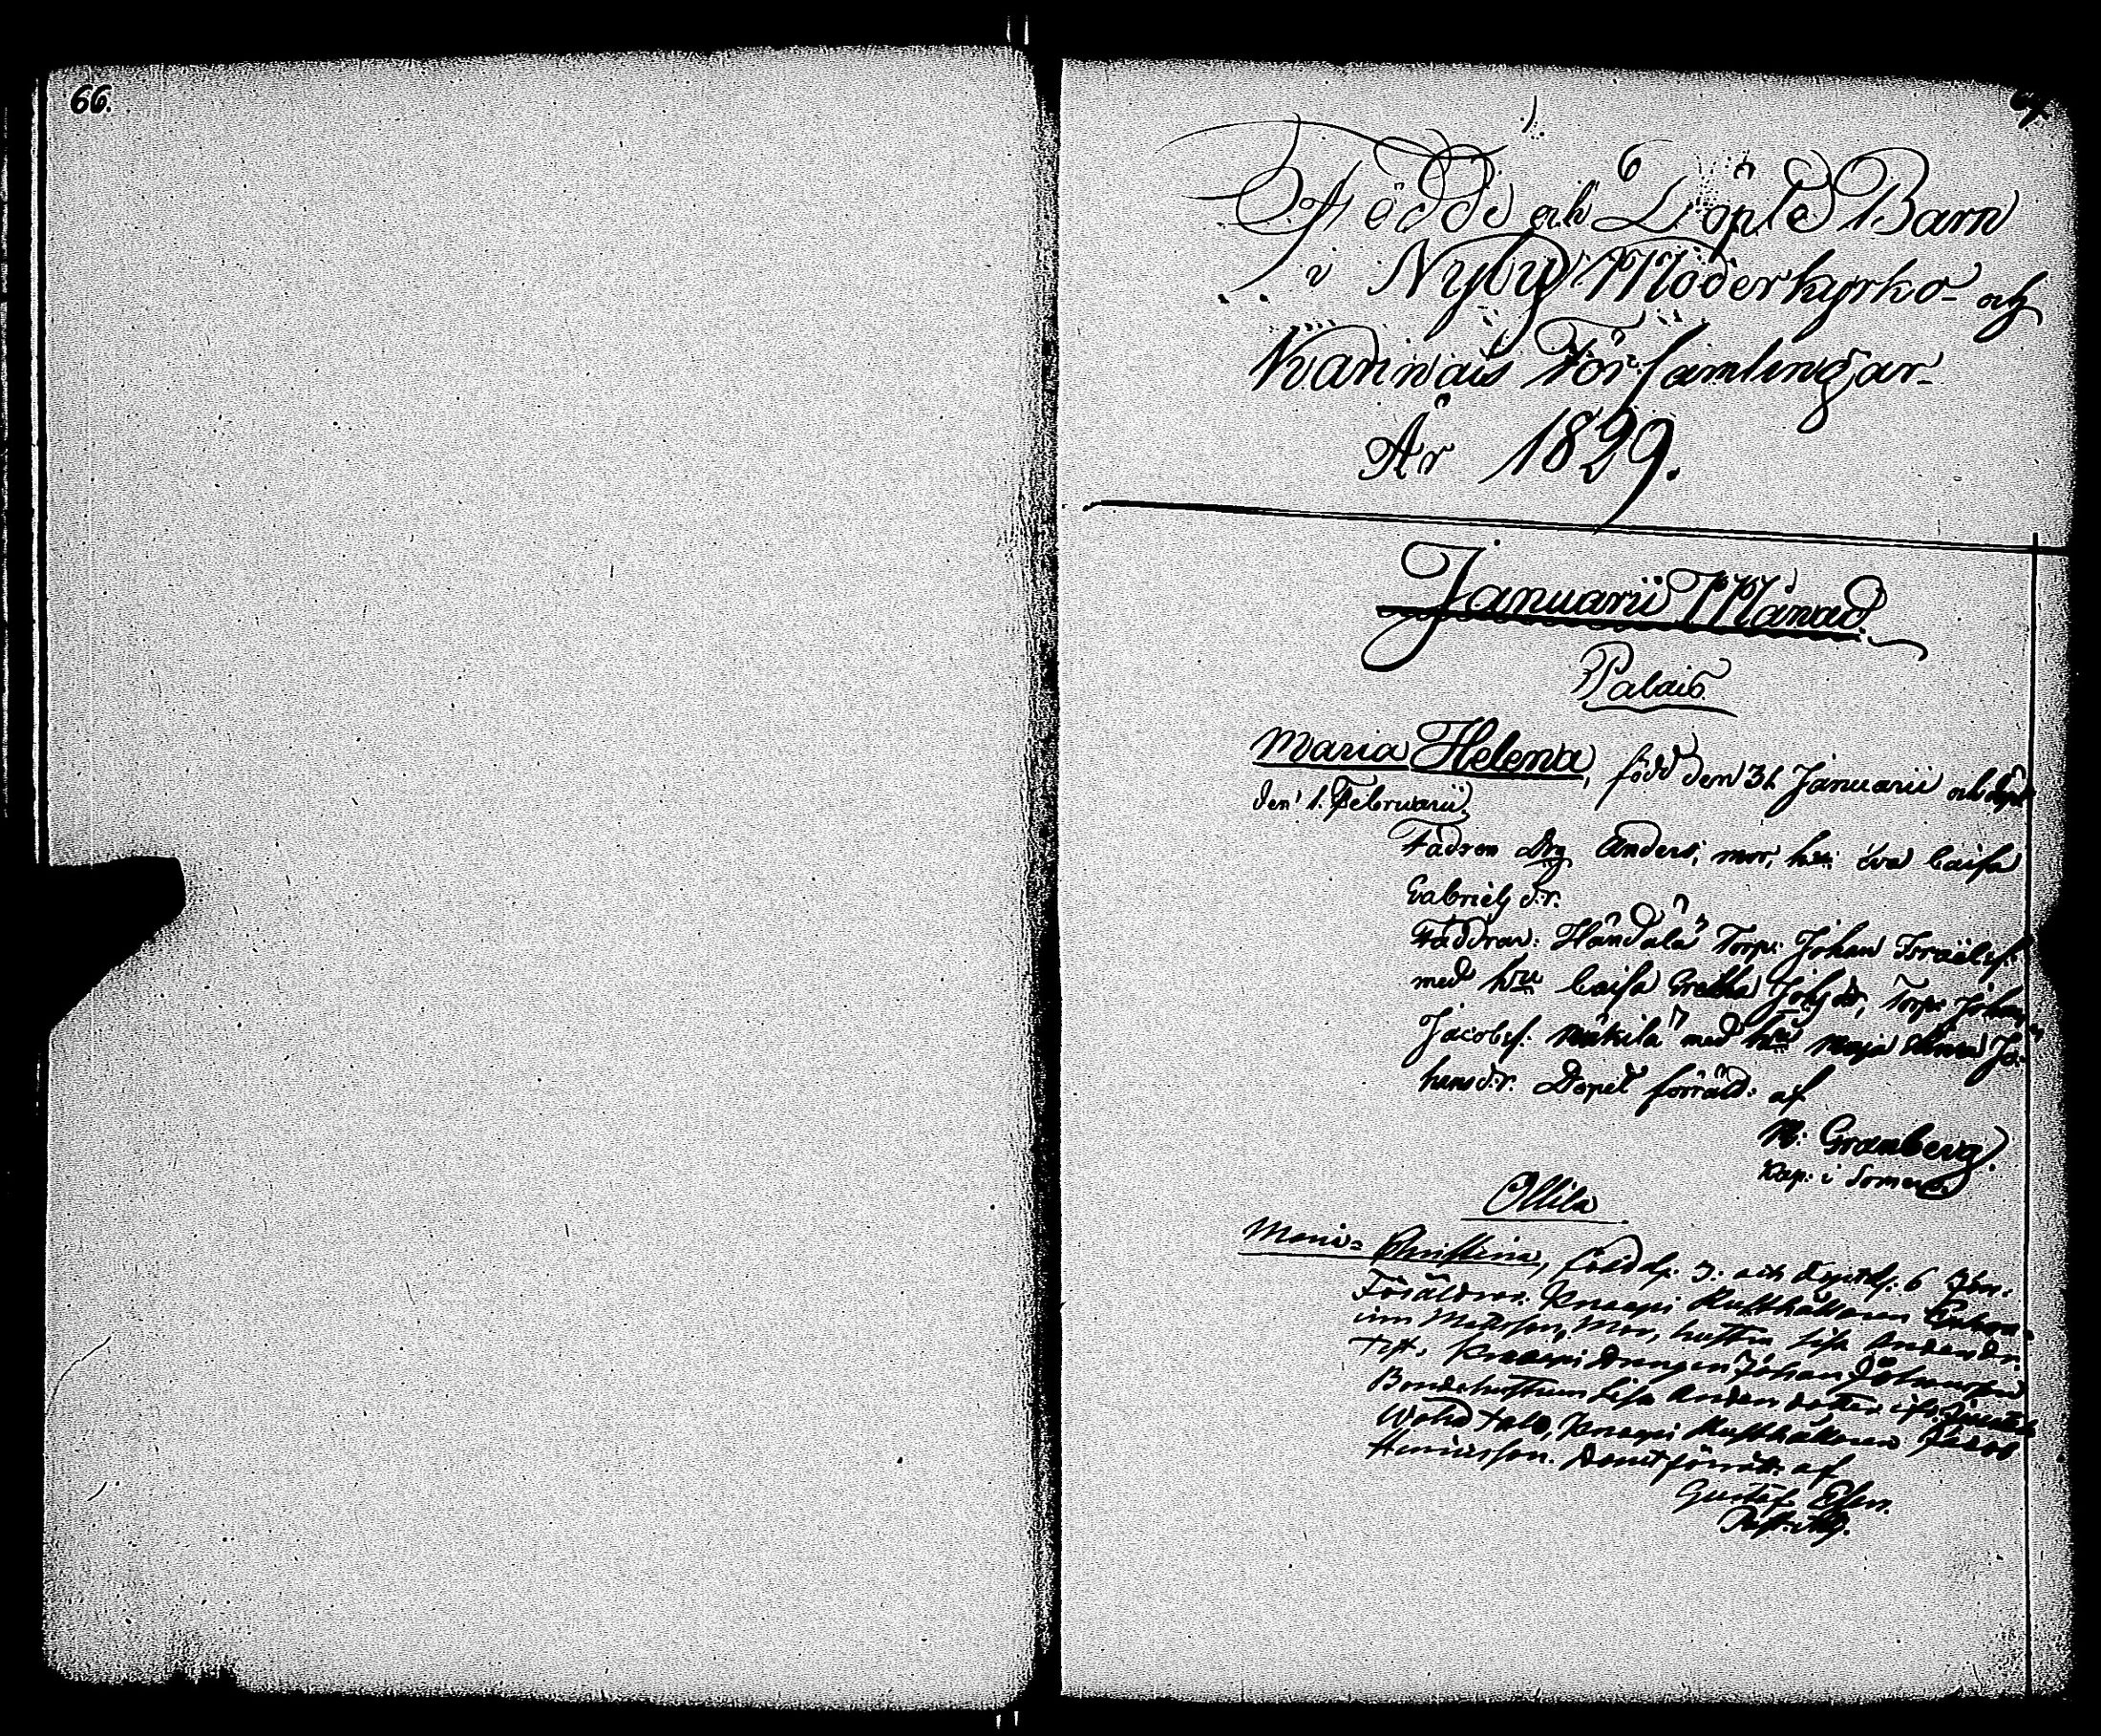 66.
Födde och Döpte Barn
i Nyby Moderkyrko- och
Kvarnvais Församlingar
År 1829.
Januarii Månad
Palais
Maria Helena, född den 31 Januarii och döpt
den 1. Februarii
Fadren Drg Anders, mor, hu: Eva Caisa
Gabriels dr.
Faddrar: Händälä Torp: Johan Israëls:
med hu Caisa Gretha Johs dr, Torp: Johan
Jacobs: Mäkilä med hu Maja Jo-
hansdr. Dopet förrätt: af
Granberg.
Kap: i Somero
Ollila
Maria Christina, född d. 3: och döpt d. 6
Föräldrar. Knaapi Rusthållaren
Mattsson, Mor, hustru Lisa Andersdr.
Test. Knaapi Drängen Johan
Bondehustrun Lisa Anders dotter
Knaapi Rusthållaren Jacob
Henricsson. Dopet förrätt: af
Gustaf